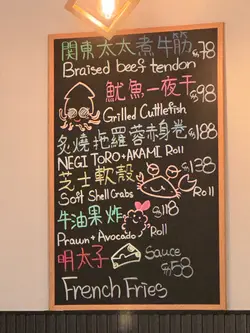 関東太太煮牛筋 $78
Braised beef tendon
魷魚一夜干 $98
Grilled Cuttlefish
炙燒拖羅蓉赤身卷 $188
NEGI TORO+AKAMI Roll
芝士軟殼 $138
Soft Shell Crabs Roll
牛油果炸 $118
Prawn+Avocado Roll
明太子 Sauce $58
French Fries